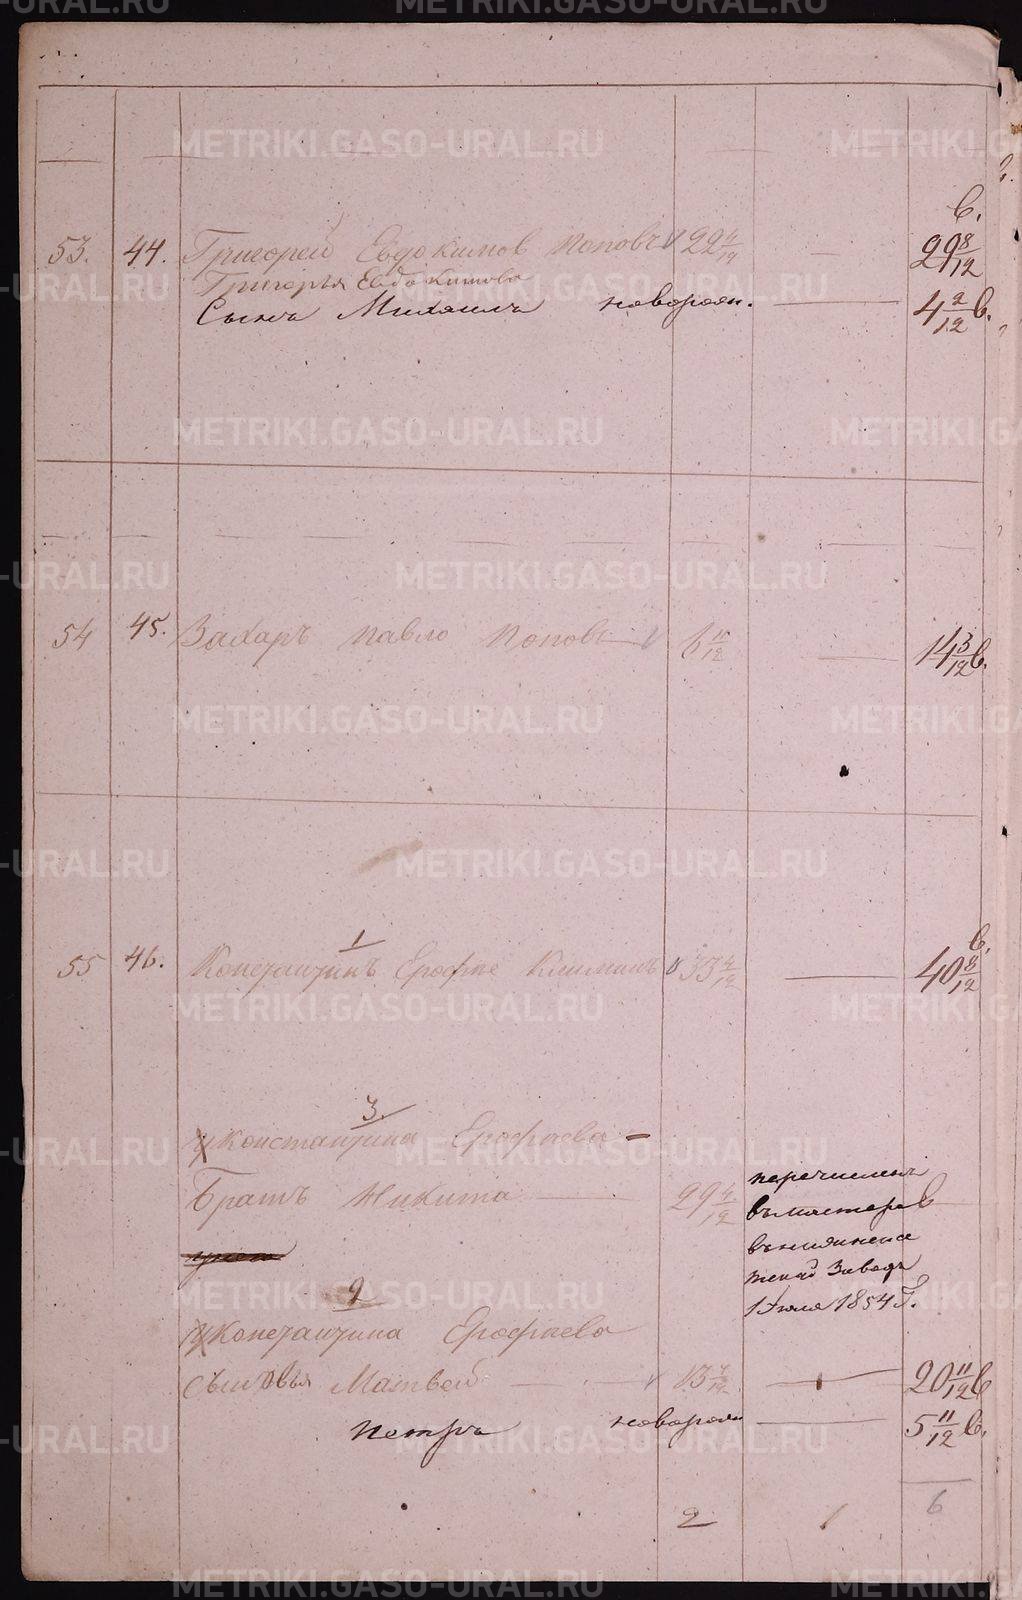 METRIKI.GASO-URAL.RU
53. 44. Григорей Евдокимов Поповъ 22 4/12 — 29 8/12 в.
Григорья Евдокимова
Сынъ Михаилъ новорож. — 4 2/12 в.
54 45. Захаръ Павло Поповъ — 6 11/12 — 14 3/12 в.
1
55 46. Константинъ Ерофее 33 4/12 — 40 8/12 в.
3.
Константина Ерофеева —
Братъ Никита — 29 4/12
перечисленъ
въ мастера
Заводъ
1 Июля 1854 Г.
2
Константина Ерофеева
сыновья Матвей — 13 7/12 — 20 11/12 в
Петръ новорож — 5 11/12 в.
2 1 6